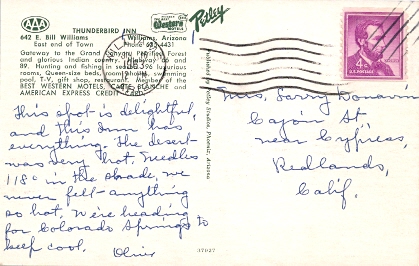 AAA
THUNDERBIRD INN
642 E. Bill Williams Williams, Arizona
East end of Town Phone 635-4431
Gateway to the Grand Canyon, Pacified Forest
and glorious Indian country. Highway 66 and
89. Hunting and fishing in season. 96 luxurious
rooms, Queen-size beds, swimming
pool, T-V, gift shop, restaurant. Member of the
BEST WESTERN MOTELS, CARTE BLANCHE and
AMERICAN EXPRESS CREDIT CARDS.
Best
Western
Motels
Petley
WILLIAMS
AUG
PM
4¢
U.S. POSTAGE
LINCOLN
This spot is delightful,
and this Inn has
everything. The desert
was very hot, Needles
118° in the shade, we
never felt anything
so hot. We're heading
for Colorado Springs to
keep cool.
Olive
Petley Studios, Phoenix, Arizona
37027
Mrs. Larry
Cajon St
near Cypress,
Redlands,
Calif.